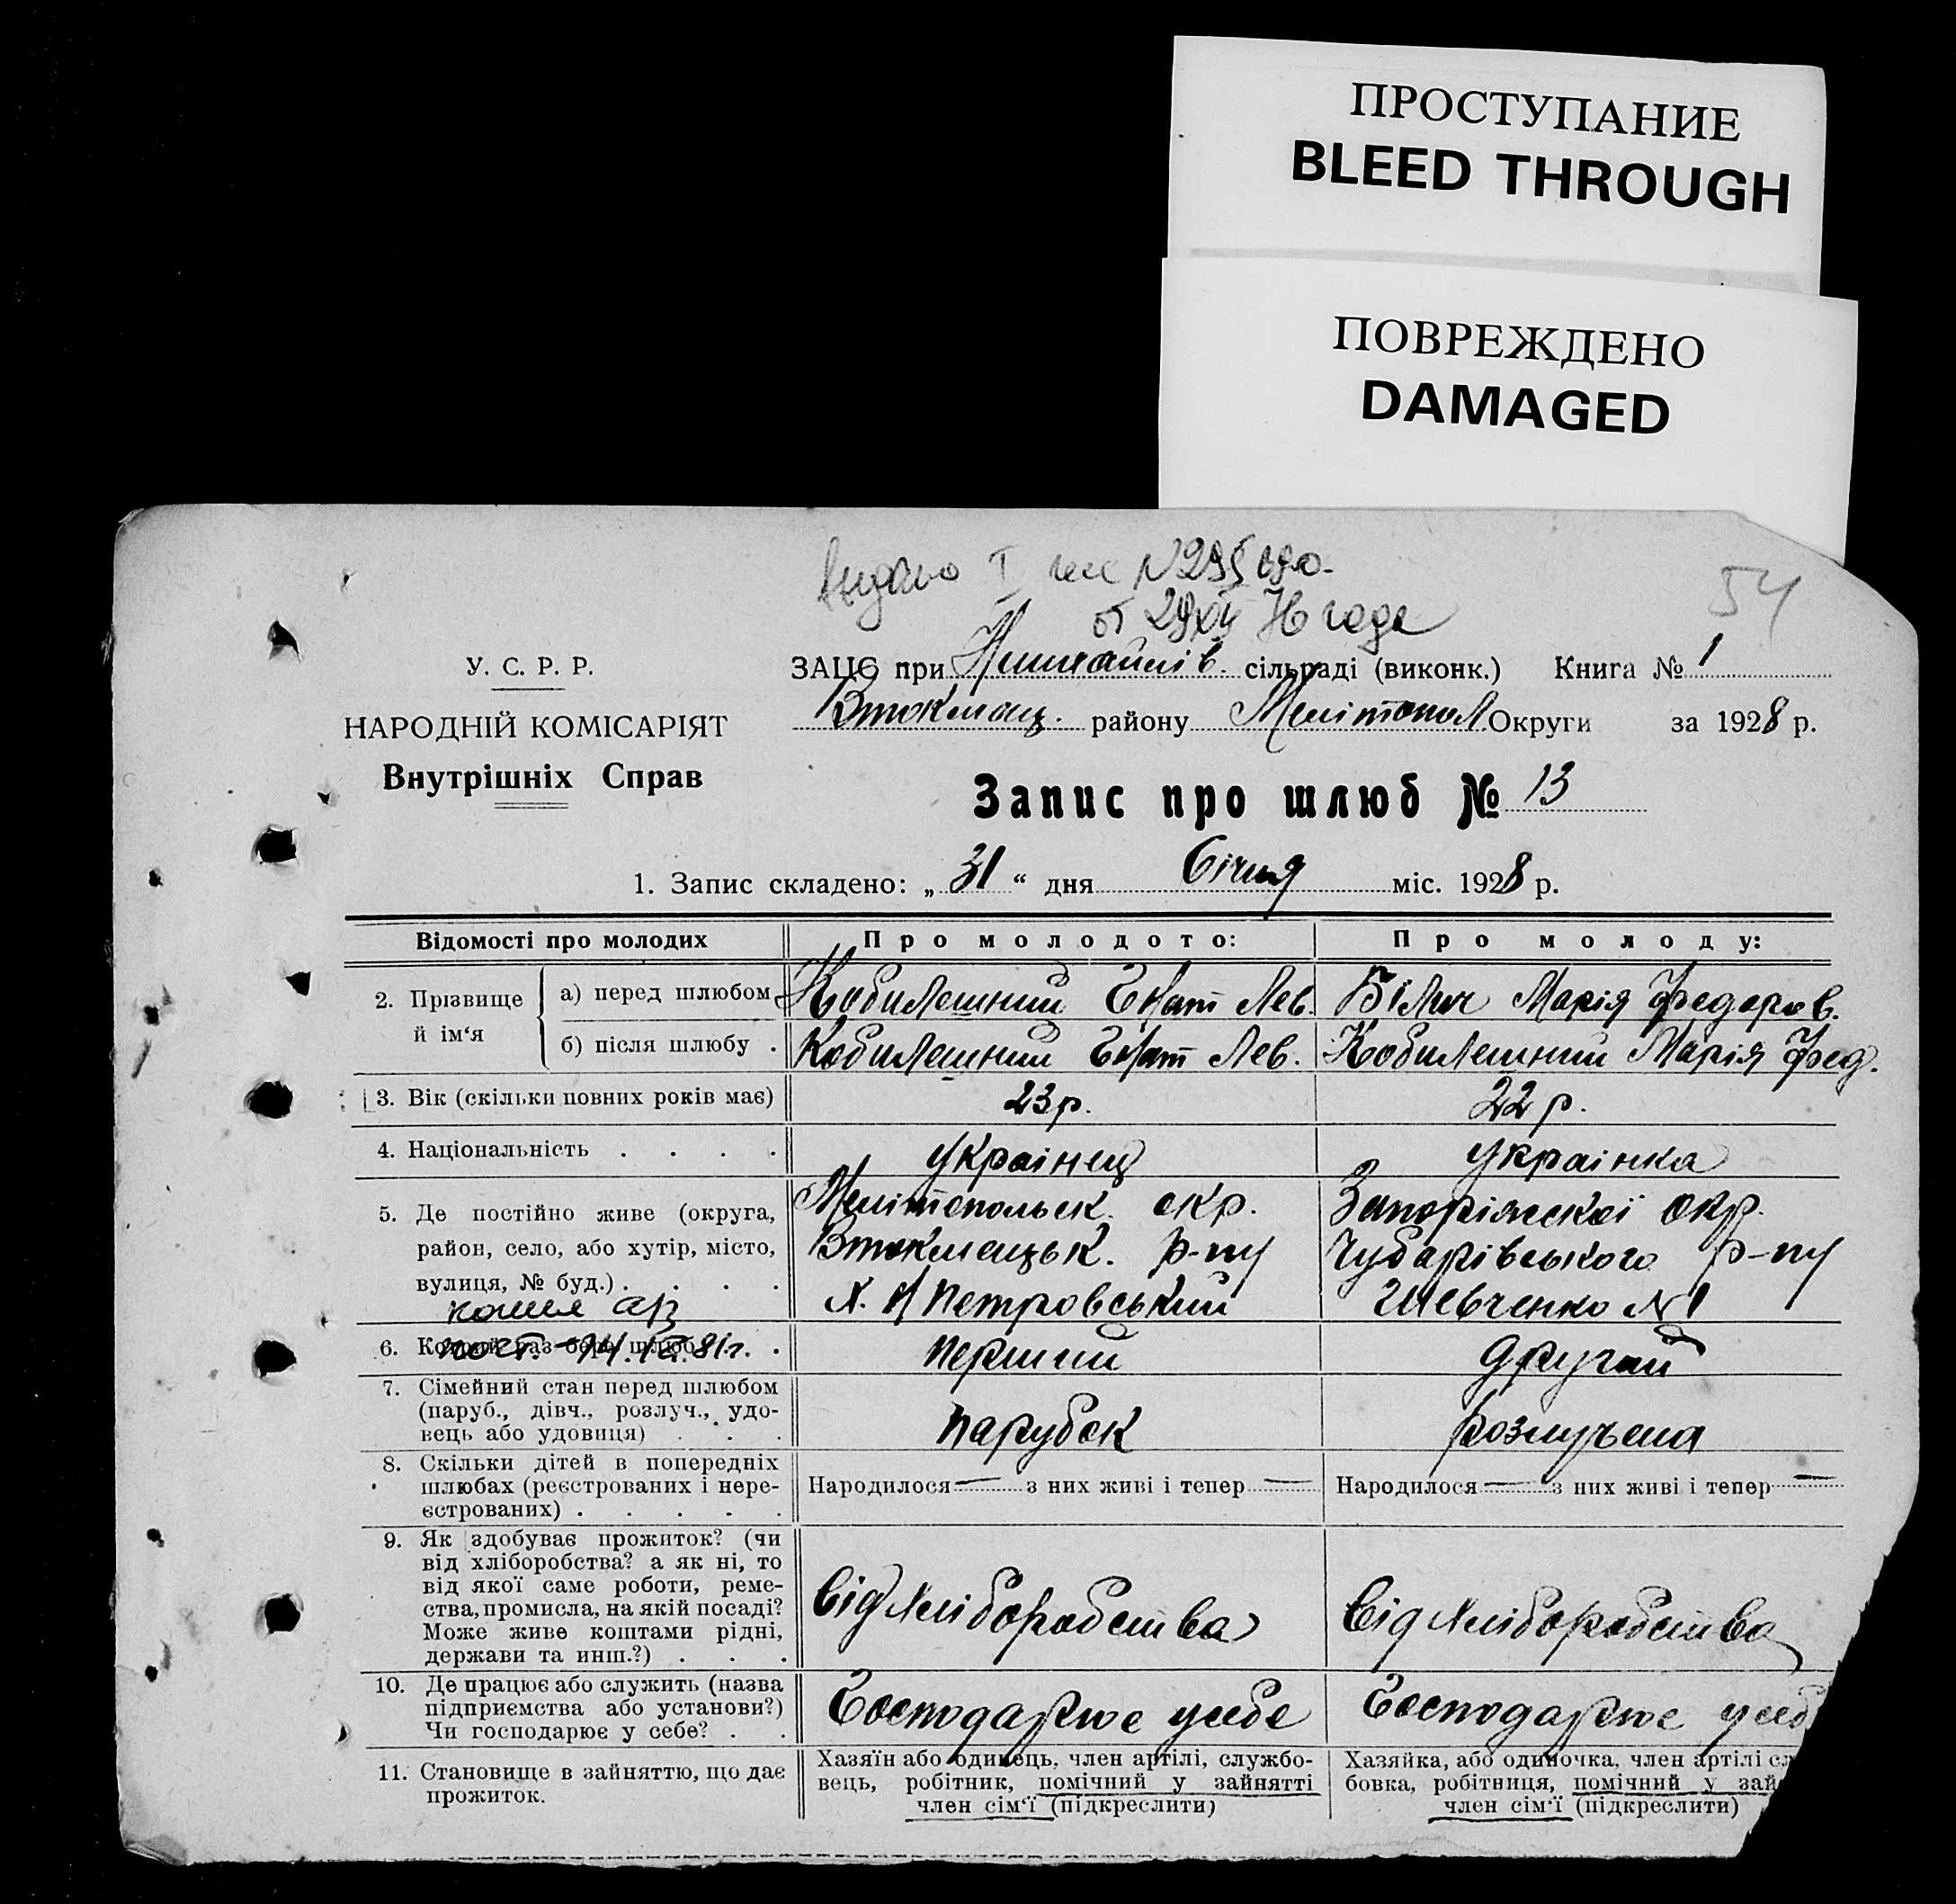 ПРОСТУПАНИЕ
BLEED THROUGH
ПОВРЕЖДЕНО
DAMAGED
Видано I
54
У. С. Р. Р.
НАРОДНІЙ КОМІСАРІЯТ
Внутрішніх Справ
ЗАЦС при сільраді (виконк.) Книга № 1
Втокмац. району Мелітопол. Округи за 1928 р.
Запис про шлюб № 13
1. Запис складено: „ 31 “ дня Січня міс. 1928 р.
Відомості про молодих Про молодого: Про молоду:
2. Прізвище й ім‘я
а) перед шлюбом Кобилешний Гнат Лев. Білич Марія Федоров.
б) після шлюбу . Кобилешний Гнат Лев. Кобилешний Марія Фед.
3. Вік (скільки повних років має) 23 р. 22 р.
4. Національність . . . . Українец Українка
5. Де постійно живе (округа,
район, село, або хутір, місто,
вулиця, № буд.) . . . .
Мелітопольськ. окр.
Втокмацьк. р-ну
х. Н Петровський
Запоріжської Окр.
Чубарівського р-ну
Шевченко № 1
6. Котрий раз бере шлюб . . Перший Другий
7. Сімейний стан перед шлюбом
(паруб., дівч., розлуч., удо-
вець або удовиця) . . .
Парубок Розлучена
8. Скільки дітей в попередніх
шлюбах (реєстрованих і нере-
єстрованих) . . . . .
Народилося — з них живі і тепер — Народилося — з них живі і тепер —
9. Як здобуває прожиток? (чи
від хліборобства? а як ні, то
від якої саме роботи, реме-
ства, промисла, на якій посаді?
Може живе коштами рідні,
держави та инш.?) . . .
Від хліборобства Від хліборобства
10. Де працює або служить (назва
підприємства або установи?)
Чи господарює у себе? . .
Господарює у себе Господарює у себ
11. Становище в зайняттю, що дає
прожиток.
Хазяїн або одинець, член артілі, службо-
вець, робітник, помічний у зайнятті
член сім‘ї (підкреслити)
Хазяйка, або одиночка, член артілі сл
бовка, робітниця, помічний у зай
член сім‘ї (підкреслити)